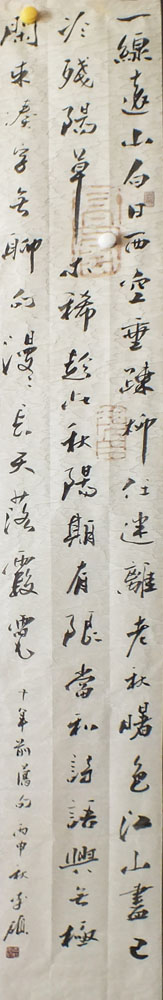 一線遠山白日西空垂疎柳任迷離老秋曙色江山盡已
冷殘陽草木稀趁此秋陽期有限當和詩語興無極
閑來凑字無聊句漫漫長天落霞飛 十年前舊句 丙申秋